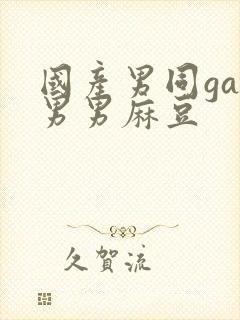 國產男同ga
男男麻豆
久賀流